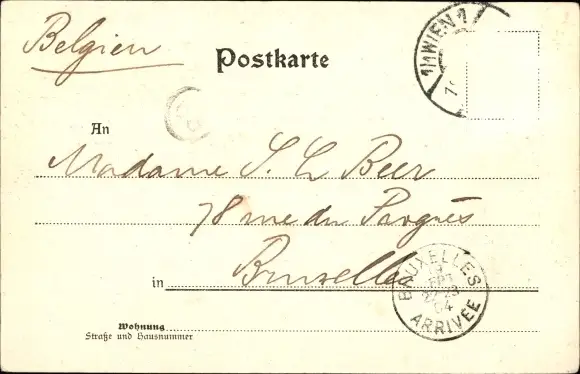 Belgien
Postkarte
1/1 WIEN 1
An
Madame S. L. Beer
78 rue du Pargrès
in Bruxelles
BRUXELLES
9
SEPT
04
ARRIVÉE
Wohnung
Straße und Hausnummer